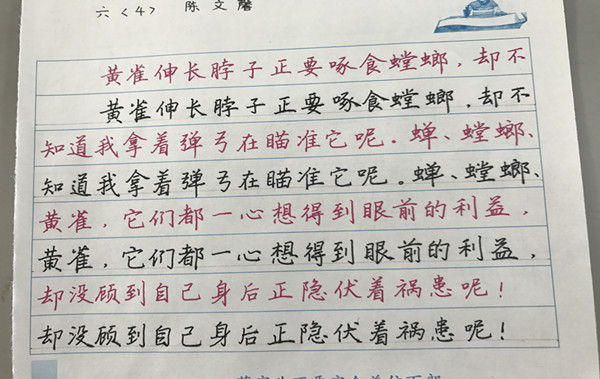 六〈4〉 陈文馨
黄雀伸长脖子正要啄食螳螂,却不
黄雀伸长脖子正要啄食螳螂.却不
知道我拿着弹弓在瞄准它呢.蝉、螳螂、
知道我拿着弹弓在瞄准它呢。蝉、螳螂、
黄雀,它们都一心想得到眼前的利益,
黄雀,它们都一心想得到眼前的利益,
却没顾到自己身后正隐伏着祸患呢!
却没顾到自己身后正隐伏着祸患呢!